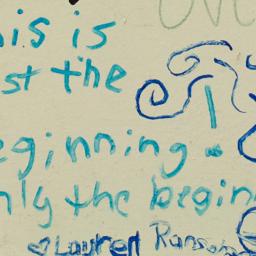 his is
st the
eginning.
nly the begin
♡ Lauren Ransom